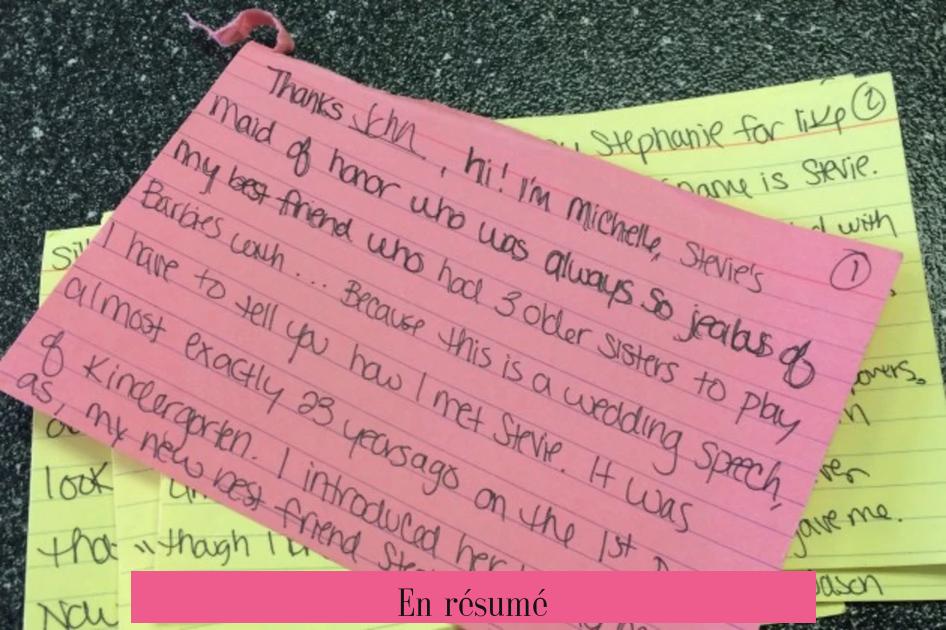 Thanks John, hi! I'm Michelle, Stevie's
①
maid of honor who was always so jealous of
my best friend who had 3 older sisters to play
Barbies with... Because this is a wedding speech,
I have to tell you how I met Stevie. It was
almost exactly 23 years ago on the 1st
of Kindergarten. I introduced her
as, my new best friend
②
Stephanie for like
name is Stevie.
with
gave me.
look
"though I
Now
En résumé